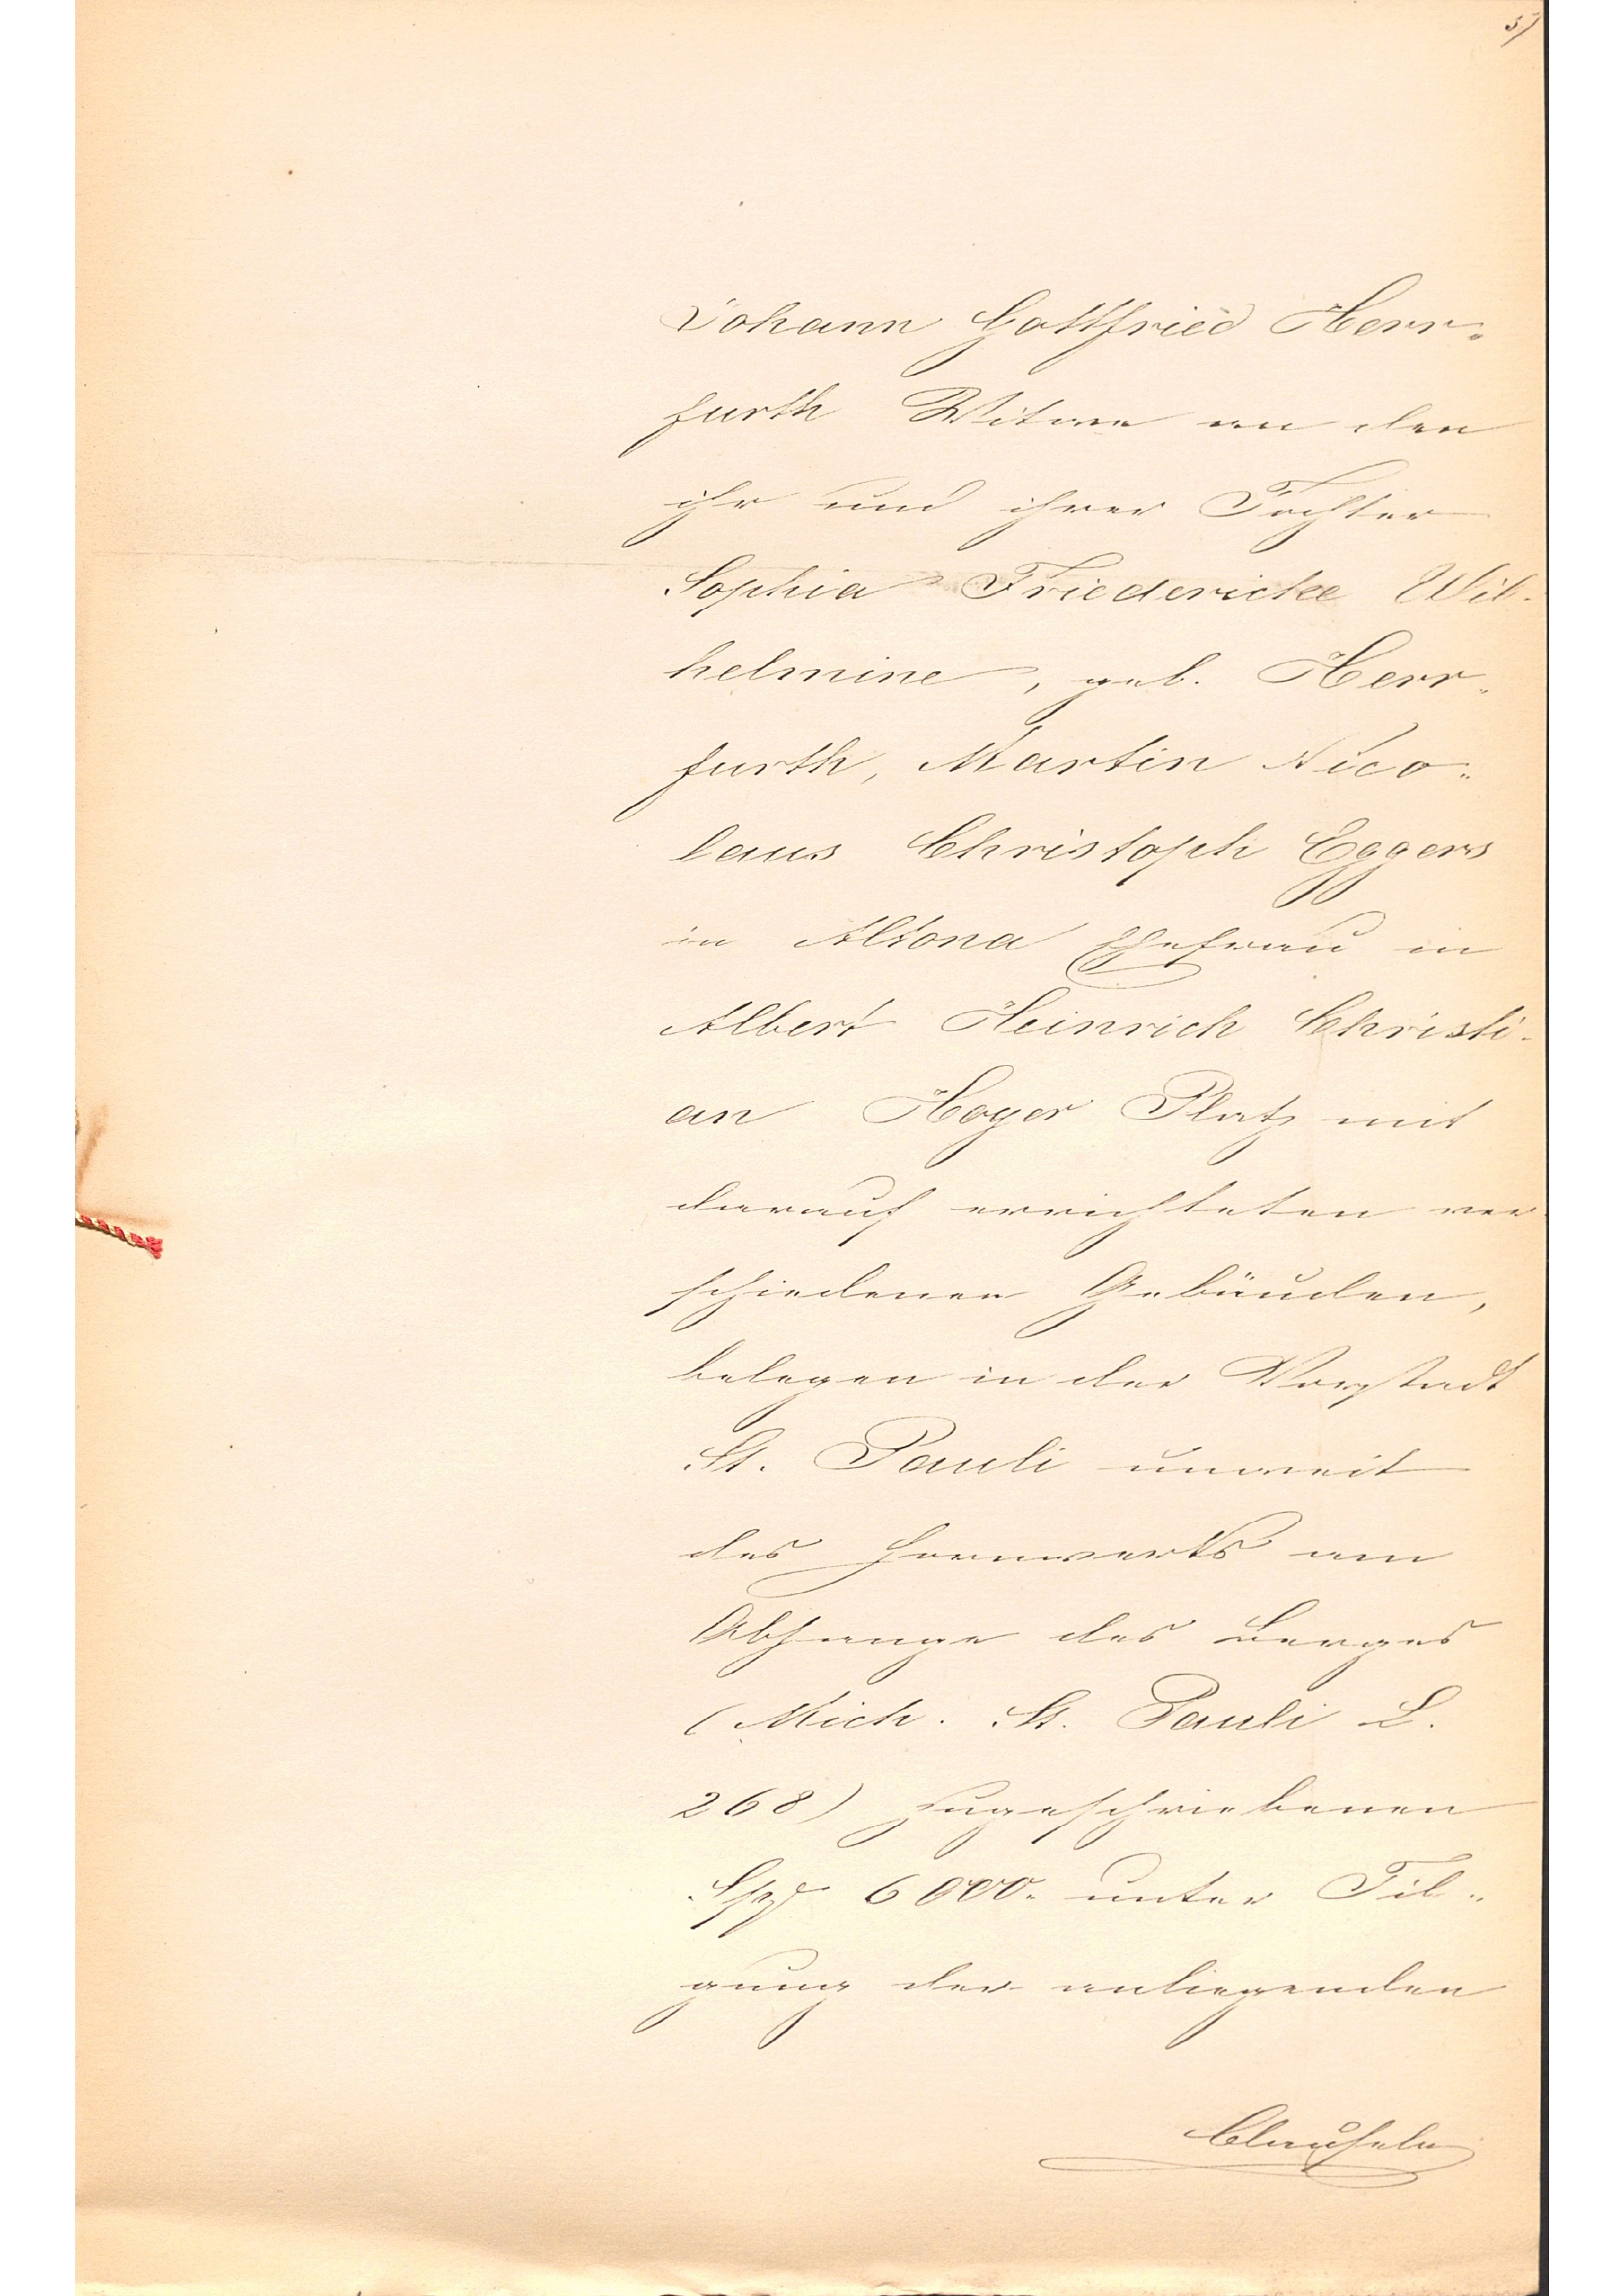 5)
Johann Gottfried Herr-
furth Witwe an den
ihr und ihrer Tochter
Sophia Friedericke Wil-
helmine, geb. Herr-
furth, Martin Nico-
laus Christoph Eggers
in Altona Ehefrau in
Albert Heinrich Christi-
an Hoyer Platz mit
darauf errichteten ver-
schiedenen Gebäuden,
belegen in der Vorstadt
St. Pauli unweit
des Hornwerks am
Abhange des Berges
(Mich. St. Pauli L.
268) zugeschriebenen
6000. unter Til-
gung der anliegenden
Clauseln